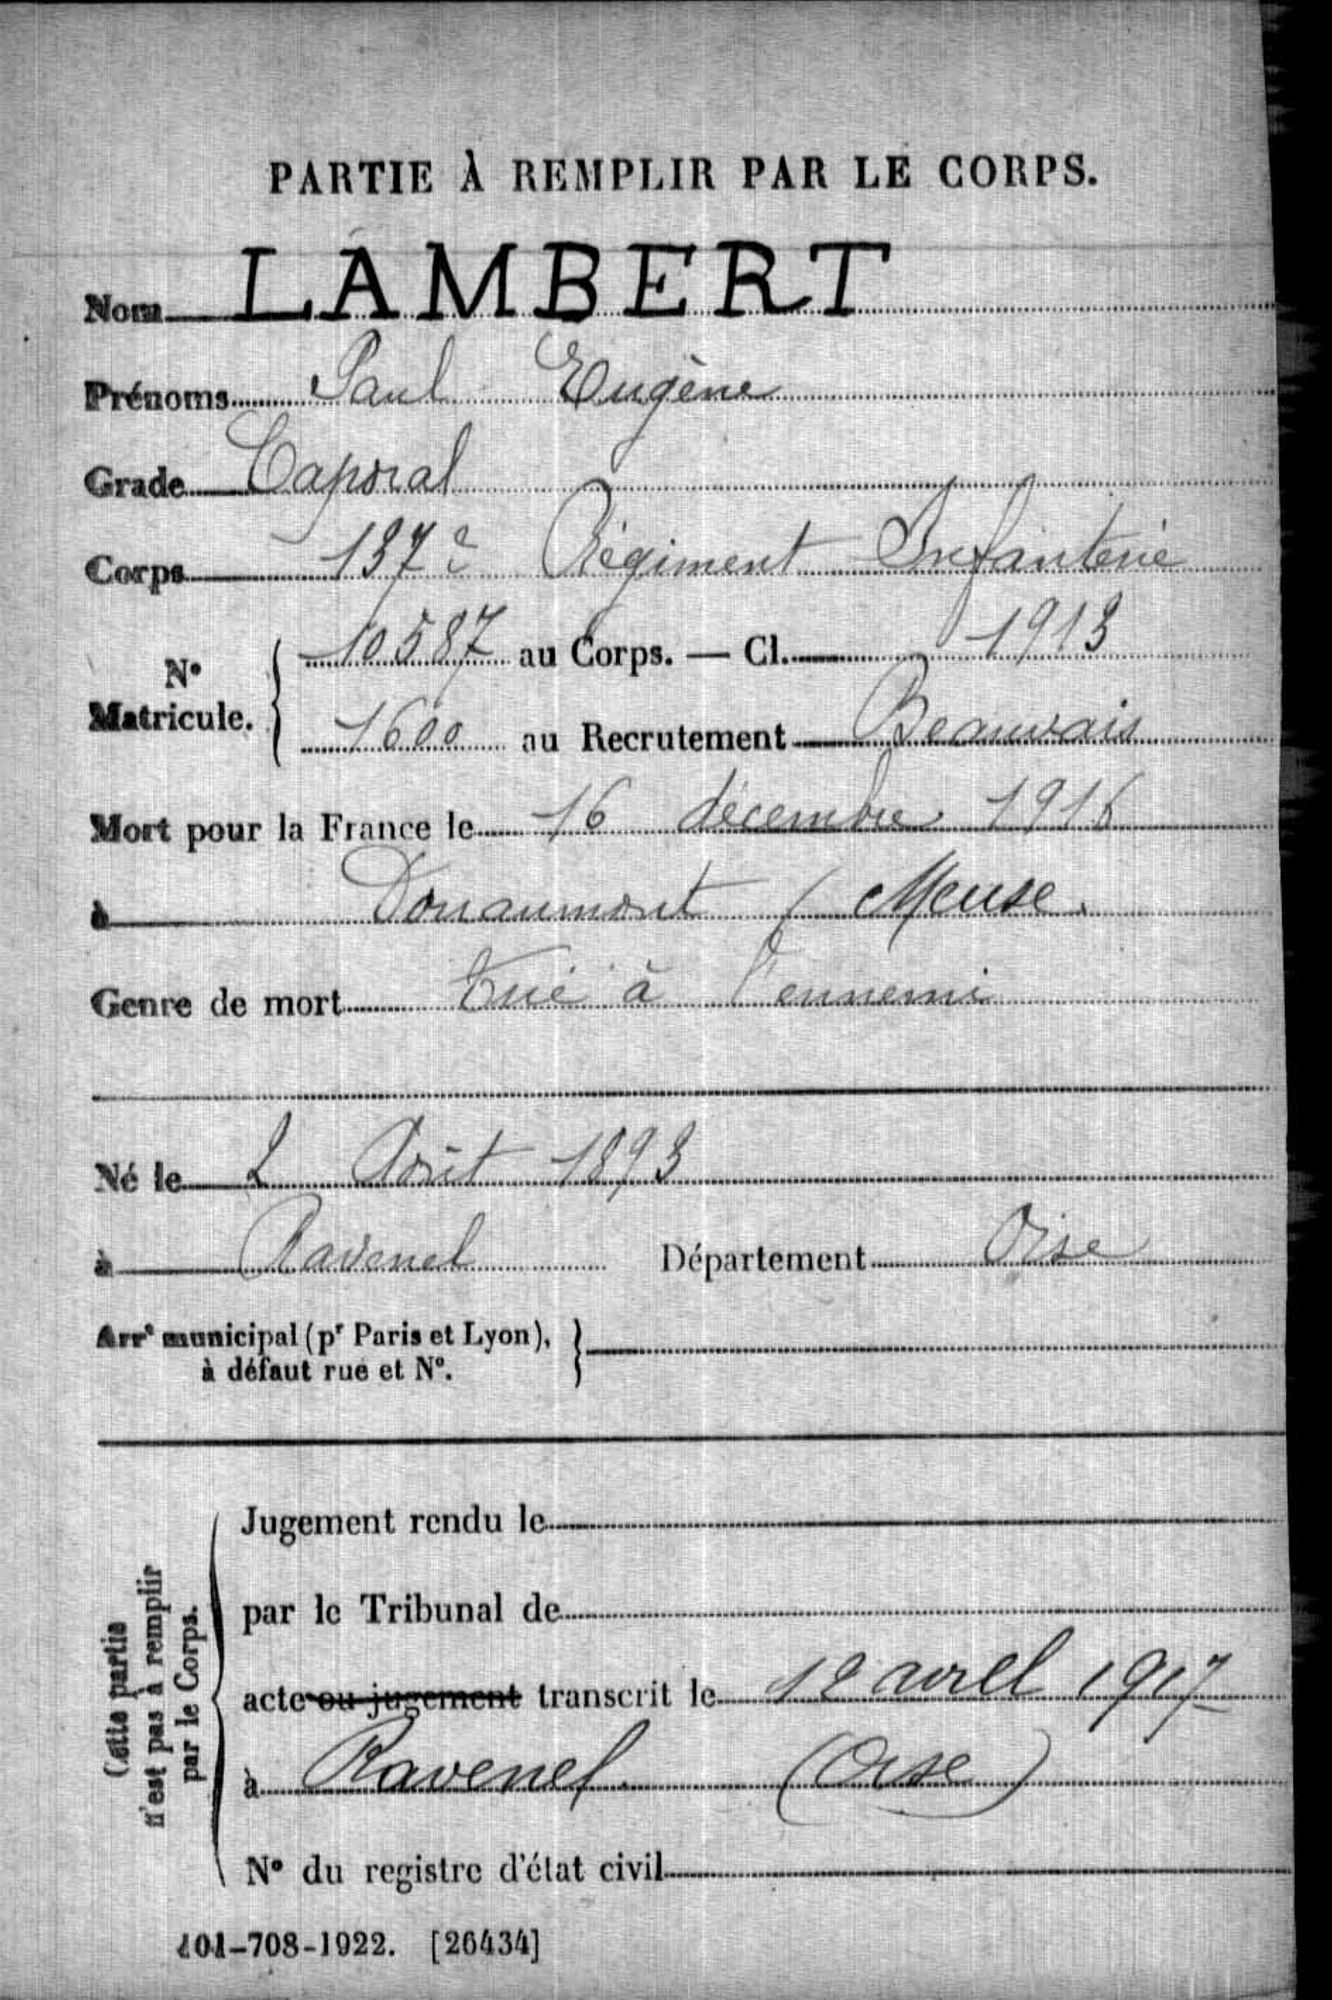 PARTIE À REMPLIR PAR LE CORPS.
Nom LAMBERT
Prénoms Paul Eugène
Grade Caporal
Corps 137e Régiment Infanterie
No Matricule. { 10587 au Corps. — Cl. 1913
1600 au Recrutement Beauvais
Mort pour la France le 16 décembre 1916
à Douaumont (Meuse.
Genre de mort tué à l'ennemi
Né le 2 Août 1893
à Ravenel Département Oise
Arrt municipal (pr Paris et Lyon), }
à défaut rue et No.
Cette partie
n'est pas à remplir
par le Corps.
Jugement rendu le
par le Tribunal de
acte ou jugement transcrit le 12 avril 1917
à Ravenel (Oise)
No du registre d'état civil
101-708-1922. [26434]